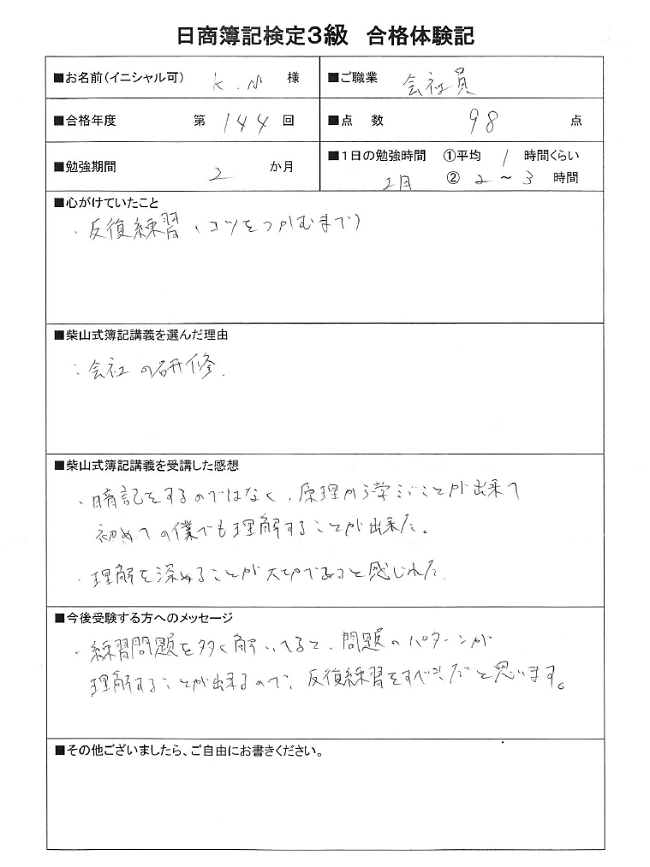 日商簿記検定3級 合格体験記
■お名前(イニシャル可) K.N 様
■ご職業 会社員
■合格年度 第 144 回
■点 数 98 点
■勉強期間 2 か月
■1日の勉強時間 ①平均 1 時間くらい
② 2 ～ 3 時間
■心がけていたこと
・反復練習(コツをつかむまで)
■柴山式簿記講義を選んだ理由
・会社の研修.
■柴山式簿記講義を受講した感想
・暗記をするのではなく、原理から学ぶことが出来て
初めての僕でも理解することが出来た。
・理解を深めることが大切であると感じれた.
■今後受験する方へのメッセージ
・練習問題を多く解いてると、問題のパターンが
理解することが出来るので、反復練習をすべきだと思います。
■その他ございましたら、ご自由にお書きください。